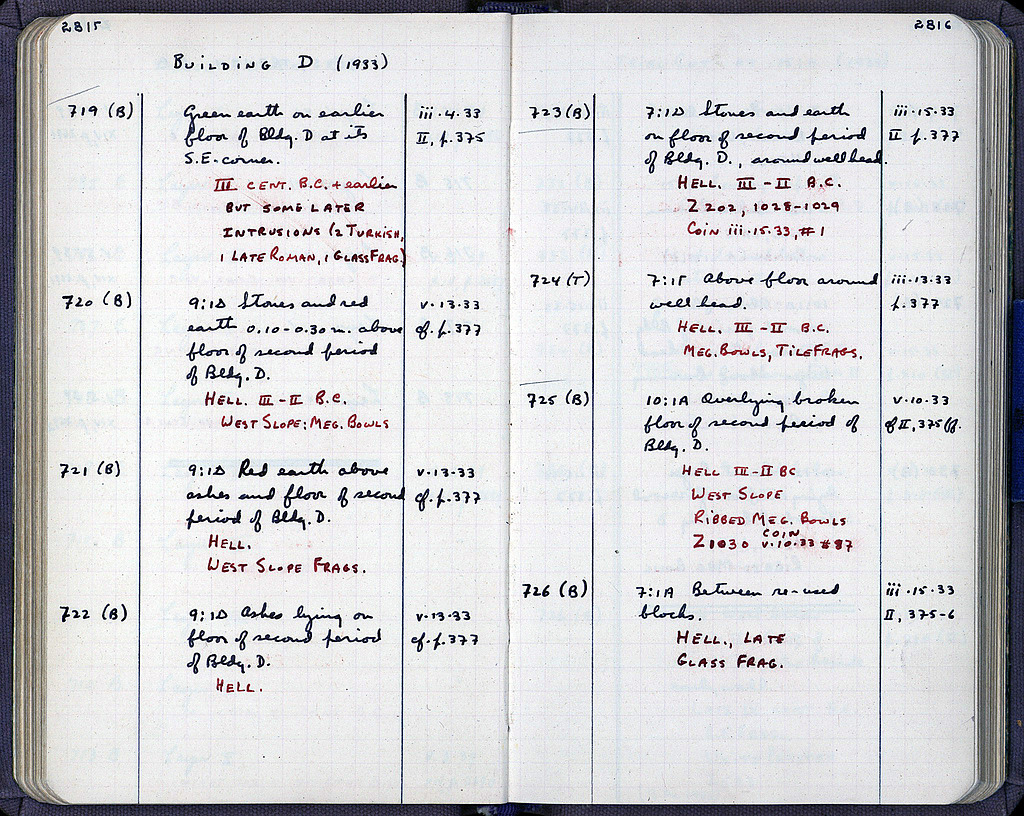 2815
BUILDING D (1933)
719 (B) Green earth on earlier iii.4.33
floor of Bldg. D at its II, p.375
S.E. corner.
III CENT. B.C. + earlier
BUT SOME LATER
INTRUSIONS (2 TURKISH,
1 LATE ROMAN, 1 GLASS FRAG.)
720 (B) 9:1D Stones and red v.13.33
earth 0.10-0.30 m. above cf. p.377
floor of second period
of Bldg. D.
HELL. III - II B.C.
WEST SLOPE; MEG. BOWLS
721 (B) 9:1D Red earth above v.13.33
ashes and floor of second cf. p.377
period of Bldg. D.
HELL.
WEST SLOPE FRAGS.
722 (B) 9:1D Ashes lying on v.13.33
floor of second period cf. p.377
of Bldg. D.
HELL.
2816
723 (B) 7:1D Stones and earth iii.15.33
on floor of second period II p.377
of Bldg. D., around well head.
HELL. III - II B.C.
Z 202, 1028-1029
COIN iii.15.33, #1
724 (T) 7:1T Above floor around iii.13.33
well head. p.377
HELL. III - II B.C.
MEG. BOWLS, TILE FRAGS.
725 (B) 10:1A Overlying broken v.10.33
floor of second period of cf II, 375 ff.
Bldg. D.
HELL III - II BC
WEST SLOPE
RIBBED MEG. BOWLS
Z 1030 COIN v.10.33 #87
726 (B) 7:1A Between re-used iii.15.33
blocks. II, 375-6
HELL., LATE
GLASS FRAG.